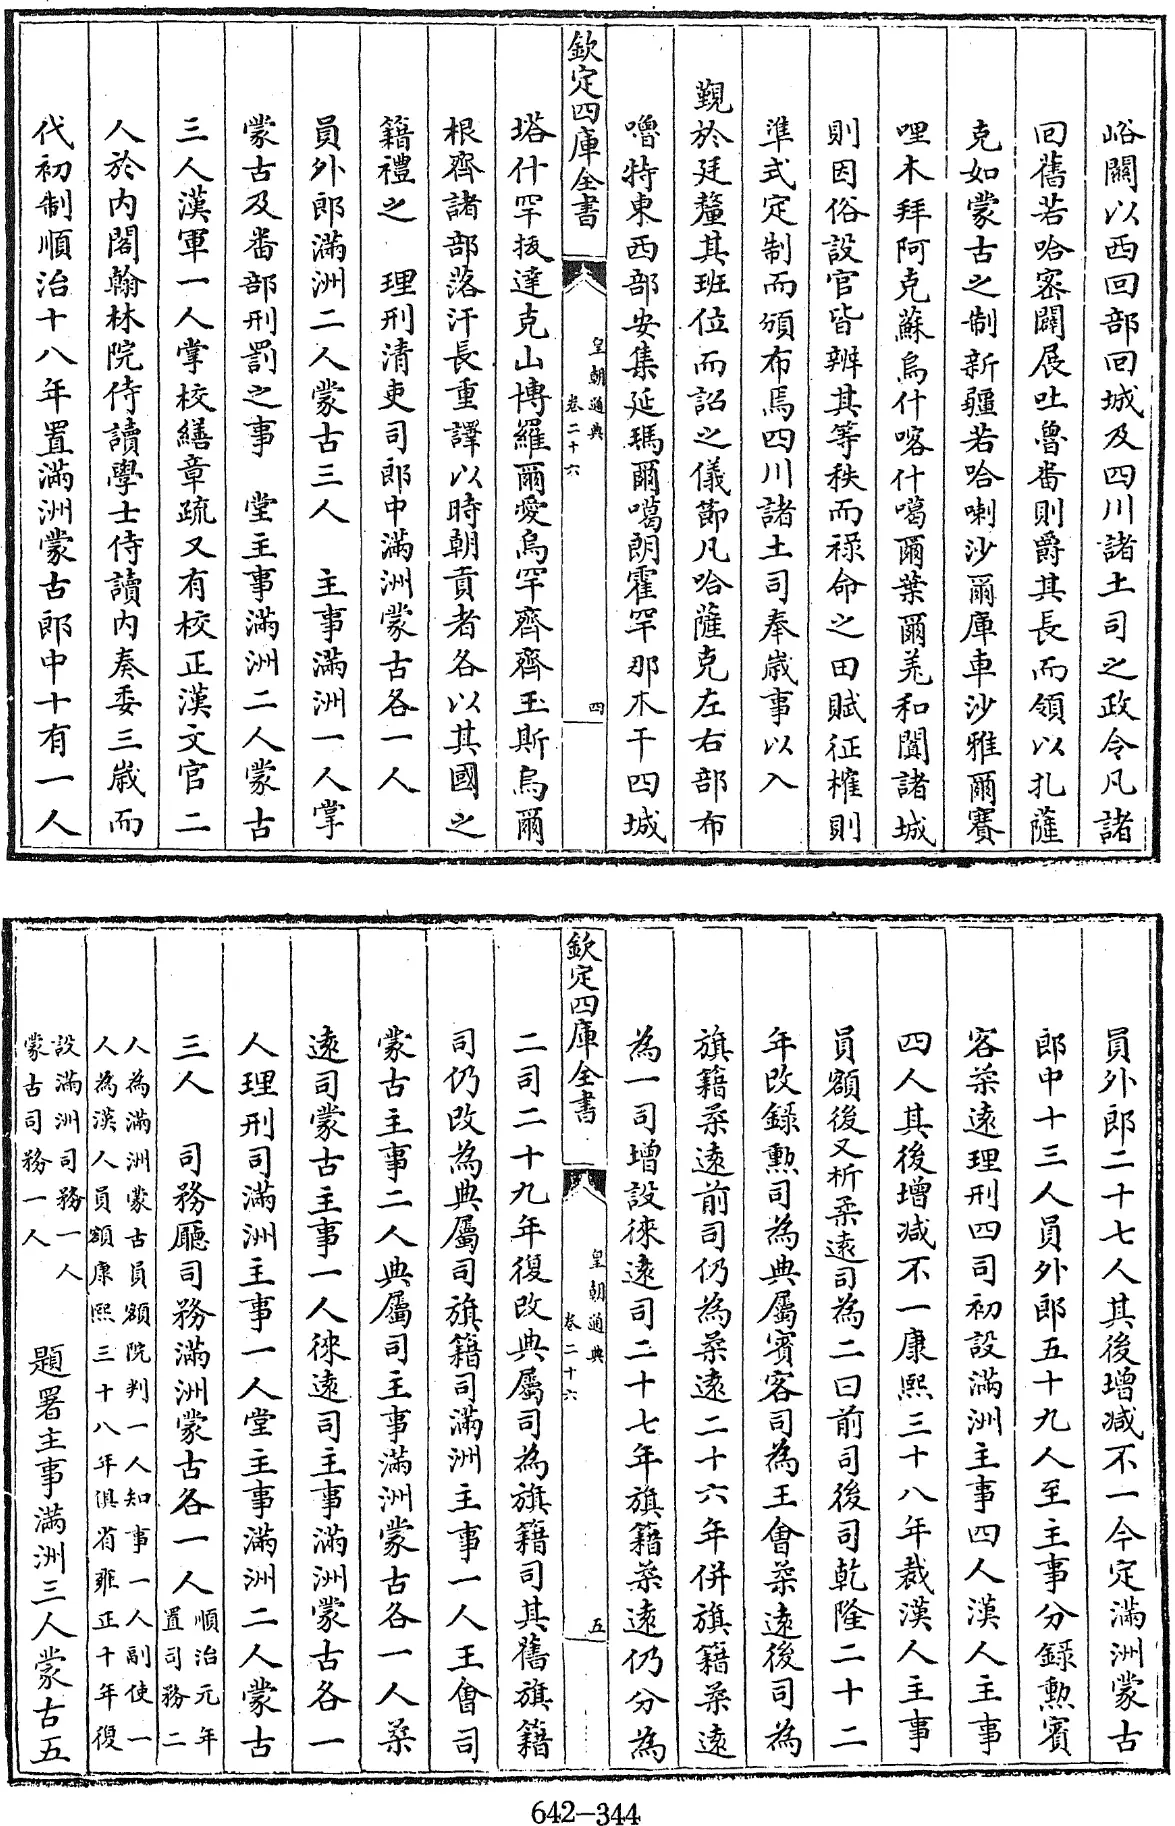 峪關以西回部回城及四川諸土司之政令凡諸
回舊若哈密闢展吐魯畨則爵其長而領以扎薩
克如蒙古之制新疆若哈喇沙爾庫車沙雅爾賽
哩木拜阿克蘇烏什喀什噶爾葉爾羌和闐諸城
則因俗設官皆辨其等秩而祿命之田賦征榷則
準式定制而頒布焉四川諸土司奉嵗事以入
覲於廷釐其班位而詔之儀節凡哈薩克左右部布
嚕特東西部安集延瑪爾噶朗霍罕那木干四城
欽定四庫全書
皇朝通典
卷二十六
四
塔什罕拔達克山博羅爾愛烏罕齊齊玉斯烏爾
根齊諸部落汗長重譯以時朝貢者各以其國之
籍禮之 理刑清吏司郎中滿洲蒙古各一人
員外郎滿洲二人蒙古三人 主事滿洲一人掌
蒙古及畨部刑罰之事 堂主事滿洲二人蒙古
三人漢軍一人掌校繕章疏又有校正漢文官二
人於内閣翰林院侍讀學士侍讀内奏委三嵗而
代初制順治十八年置滿洲蒙古郎中十有一人
員外郎二十七人其後增減不一今定滿洲蒙古
郎中十三人員外郎五十九人至主事分録勲賓
客柔逺理刑四司初設滿洲主事四人漢人主事
四人其後增减不一康熙三十八年裁漢人主事
員額後又析柔逺司為二曰前司後司乾隆二十二
年改録勲司為典屬賓客司為王會柔逺後司為
旗籍柔逺前司仍為柔逺二十六年併旗籍柔逺
為一司增設徠逺司二十七年旗籍柔逺仍分為
欽定四庫全書
皇朝通典
卷二十六
五
二司二十九年復改典屬司為旗籍司其舊旗籍
司仍改為典屬司旗籍司滿洲主事一人王會司
蒙古主事二人典屬司主事滿洲蒙古各一人柔
逺司蒙古主事一人徠逺司主事滿洲蒙古各一
人理刑司滿洲主事一人堂主事滿洲二人蒙古
三人 司務廳司務滿洲蒙古各一人順治元年置司務二
人為滿洲蒙古員額院判一人知事一人副使一
人為漢人員額康熙三十八年俱省雍正十年復
設滿洲司務一人
蒙古司務一人 題署主事滿洲三人蒙古五
642-344